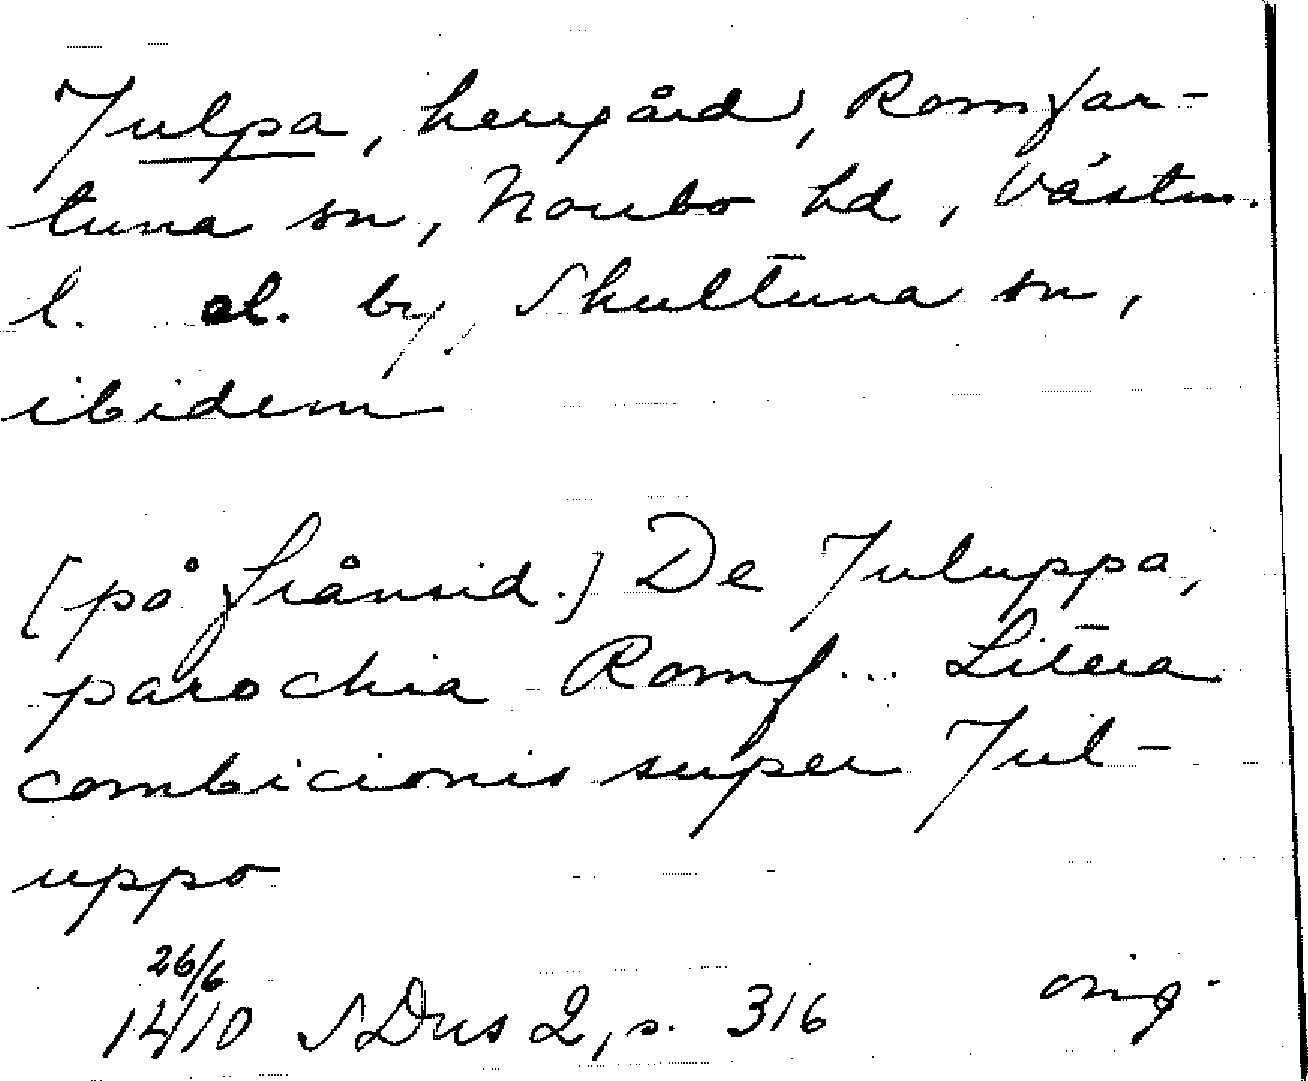 Julpa, herrgård, Romfar-
tuna sn, Norrbo hd, Västm.
l. el. by, Skultuna sn,
ibidem
[på frånsid.] De Juluppa,
parochia Romf... Litera
combicionis super Jul-
uppo
26/6
1410 SDns 2, s. 316 orig.